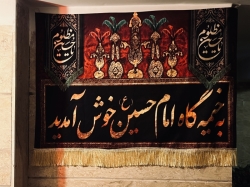 حسین مظلوم
حسین مظلوم
به خیمه گاه امام حسین ع خوش آمدید